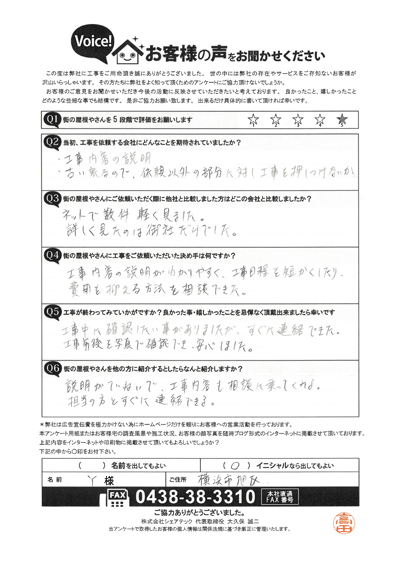 Voice!
お客様の声をお聞かせください
この度は弊社に工事をご用命頂き誠にありがとうございました。世の中には弊社の存在やサービスをご存知ないお客様が
沢山いらっしゃいます。その方たちに弊社をよく知って頂くためのアンケートにご協力頂けないでしょうか。
お客様のご意見をお聞かせいただき今後の活動に反映させていただきたいと考えております。良かったこと、嬉しかったこと
どのような些細な事でも結構です。是非ご協力お願い致します。出来るだけ具体的に書いて頂ければ幸いです。
Q1 街の屋根やさんを5段階で評価をお願いします ☆ ☆ ☆ ☆ ★
Q2 当初、工事を依頼する会社にどんなことを期待されていましたか？
・工事内容の説明
・古い家なので、依頼以外の部分に対し工事を押しつけないか
Q3 街の屋根やさんにご依頼いただく際に他社と比較しました方はどこの会社と比較しましたか？
ネットで数件軽く見ました。
詳しく見たのは御社だけでした。
Q4 街の屋根やさんに工事をご依頼いただいた決め手は何ですか？
工事内容の説明がわかりやすく、工事日程を短かくしたり、
費用を抑える方法を相談できた。
Q5 工事が終わってみていかがですか？良かった事・嬉しかったことを忌憚なく頂戴出来ましたら幸いです
工事中に確認したい事がありましたが、すぐに連絡できた。
工事前後を写真で確認でき、安心しました。
Q6 街の屋根やさんを他の方に紹介するとしたらなんと紹介しますか？
説明がていねいで、工事内容も相談に乗ってくれる。
担当の方とすぐに連絡できる。
＊弊社は広告宣伝費を極力かけない為にホームページだけを頼りにお客様への営業活動を行っております。
本アンケート用紙またはお客様宅の調査風景や施工状況、お客様の顔写真を随時ブログ形式のインターネットに掲載させて頂いております。
上記内容をインターネットや印刷物に掲載させて頂いてもよろしいでしょうか？
下記の中から〇印をお付け下さい。
（ ）名前を出してもよい （○）イニシャルなら出してもよい
名前 Y 様 ご住所 横浜市旭区
FAX 0438-38-3310 本社直通 FAX番号
ご協力ありがとうございました。
株式会社シェアテック 代表取締役 大久保 誠二
当アンケートで取得したお客様の個人情報は関係法規に基づき厳正に管理いたします。